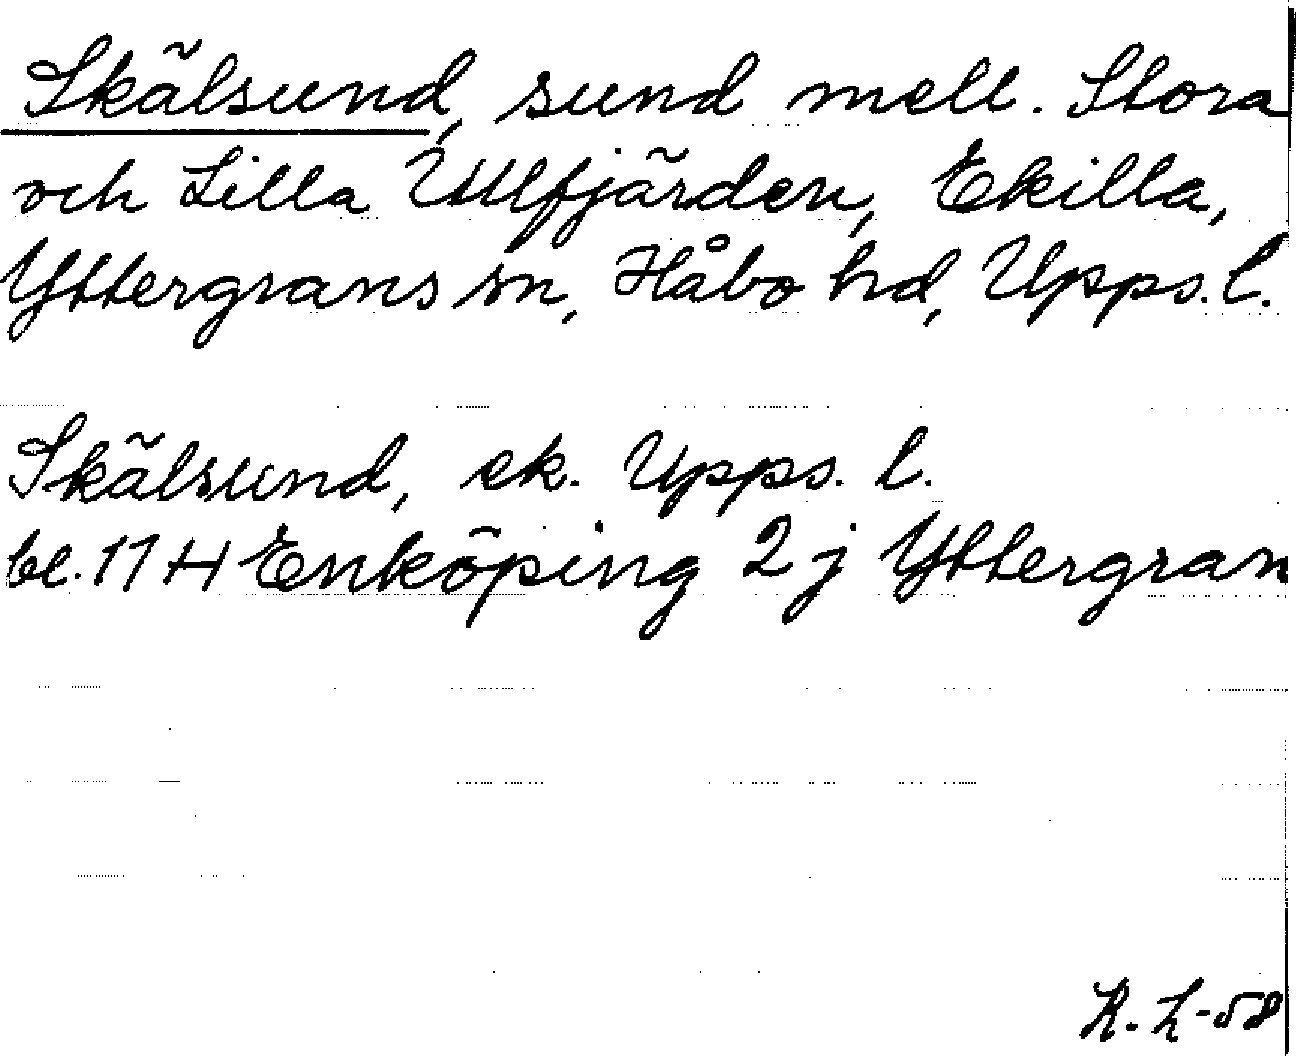 Skälsund, sund mell. Stora
och Lilla Ullfjärden, Ekilla,
Yttergrans sn, Håbo hd, Upps. l.
Skälsund, ek. Upps. l.
bl. 11 H Enköping 2 j Yttergran
R. L-58